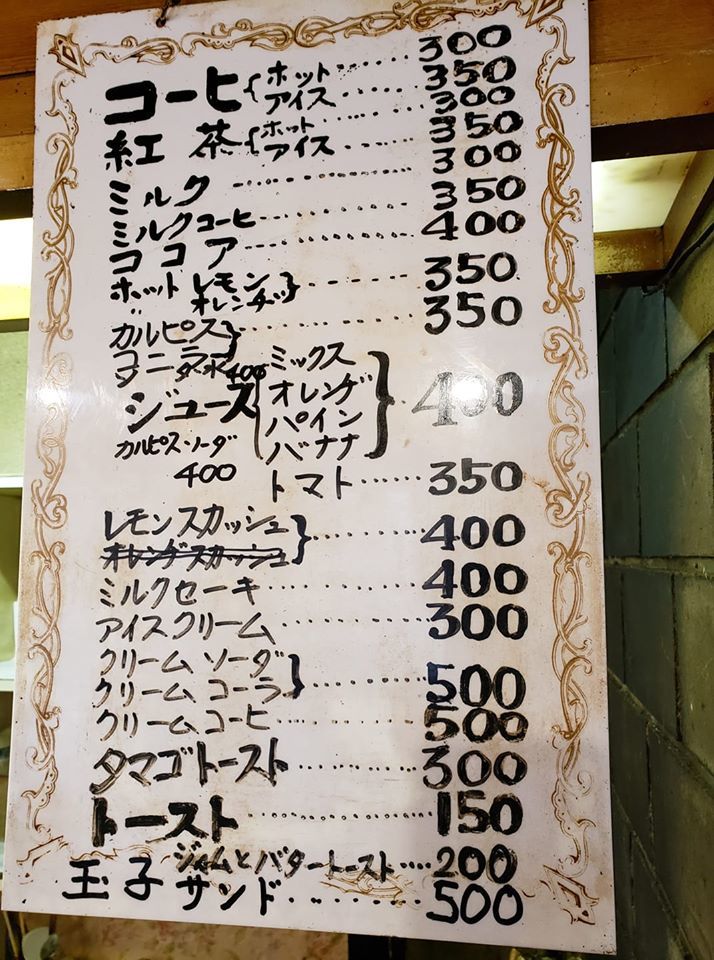 コーヒ { ホット ‥‥‥ 300
アイス ‥‥‥ 350
紅茶 { ホット ‥‥‥ 300
アイス ‥‥‥ 350
ミルク ‥‥‥ 300
ミルクコーヒ ‥‥‥ 350
ココア ‥‥‥ 400
ホット レモン } ‥‥‥ 350
〃 オレンヂ
カルピス } ‥‥‥ 350
コーラ
400
ジュース { ミックス } 400
オレンヂ
パイン
バナナ
カルピス・ソーダ
400
トマト ‥‥‥ 350
レモンスカッシュ } ‥‥‥ 400
オレンヂスカッシュ
ミルクセーキ ‥‥‥ 400
アイスクリーム ‥‥‥ 300
クリーム ソーダ } ‥‥‥ 500
クリーム コーラ
クリームコーヒ ‥‥‥ 500
タマゴトースト ‥‥‥ 300
トースト ‥‥‥ 150
ジャムとバタートースト ‥‥ 200
玉子サンド ‥‥‥ 500